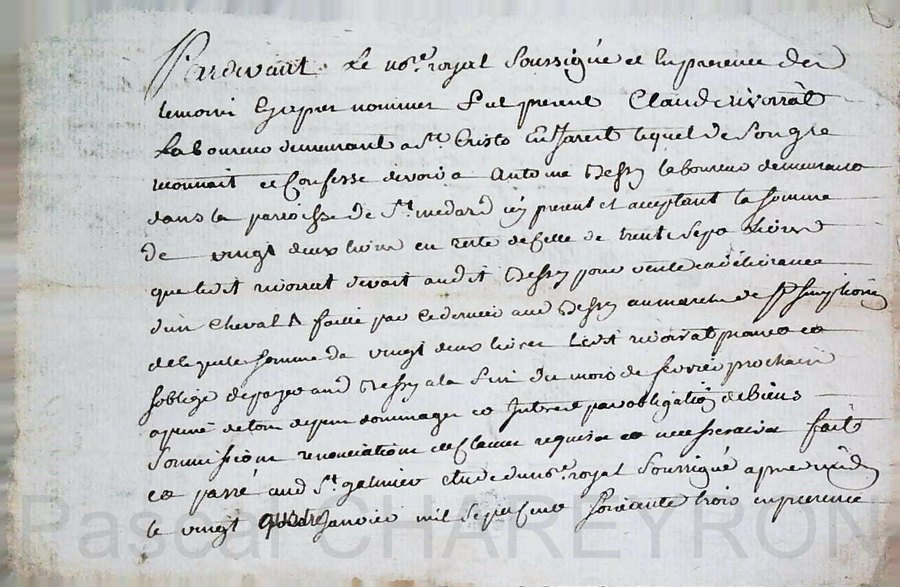 Pardevant Le no.re royal Soussigné et En presence des
temoins Cy apres nommes fut present Claude rivorrat
Laboureur demeurant a St. Cristo En Jarest lequel de Son gre
reconnait et Confesse devoir a Antoine Bessy laboureur demeurant
dans la parroisse de St. medard icy present et acceptant la somme
de vingt deux livres en reste de Celle de trente sept livres
que ledit rivorrat devait audit Bessy pour vente et delivrance
d'un Cheval A faitte par Ce dernier aud Bessy au marché de St. Simphorien
de laquelle somme de vingt deux livres Ledit rivoirat promet et
s'oblige de payer aud Bessy a la fin du mois de fevrier prochain
a peine de tous depens dommages et Interets par obligation de biens
Soumissions renonciations et Clauses requises et necessaires fait
et passé aud St. galmier etude du no.re royal Soussigné apres midy
le vingt quatre Janvier mil sept cent Soixante trois en presence
Pascal CHAREYRON